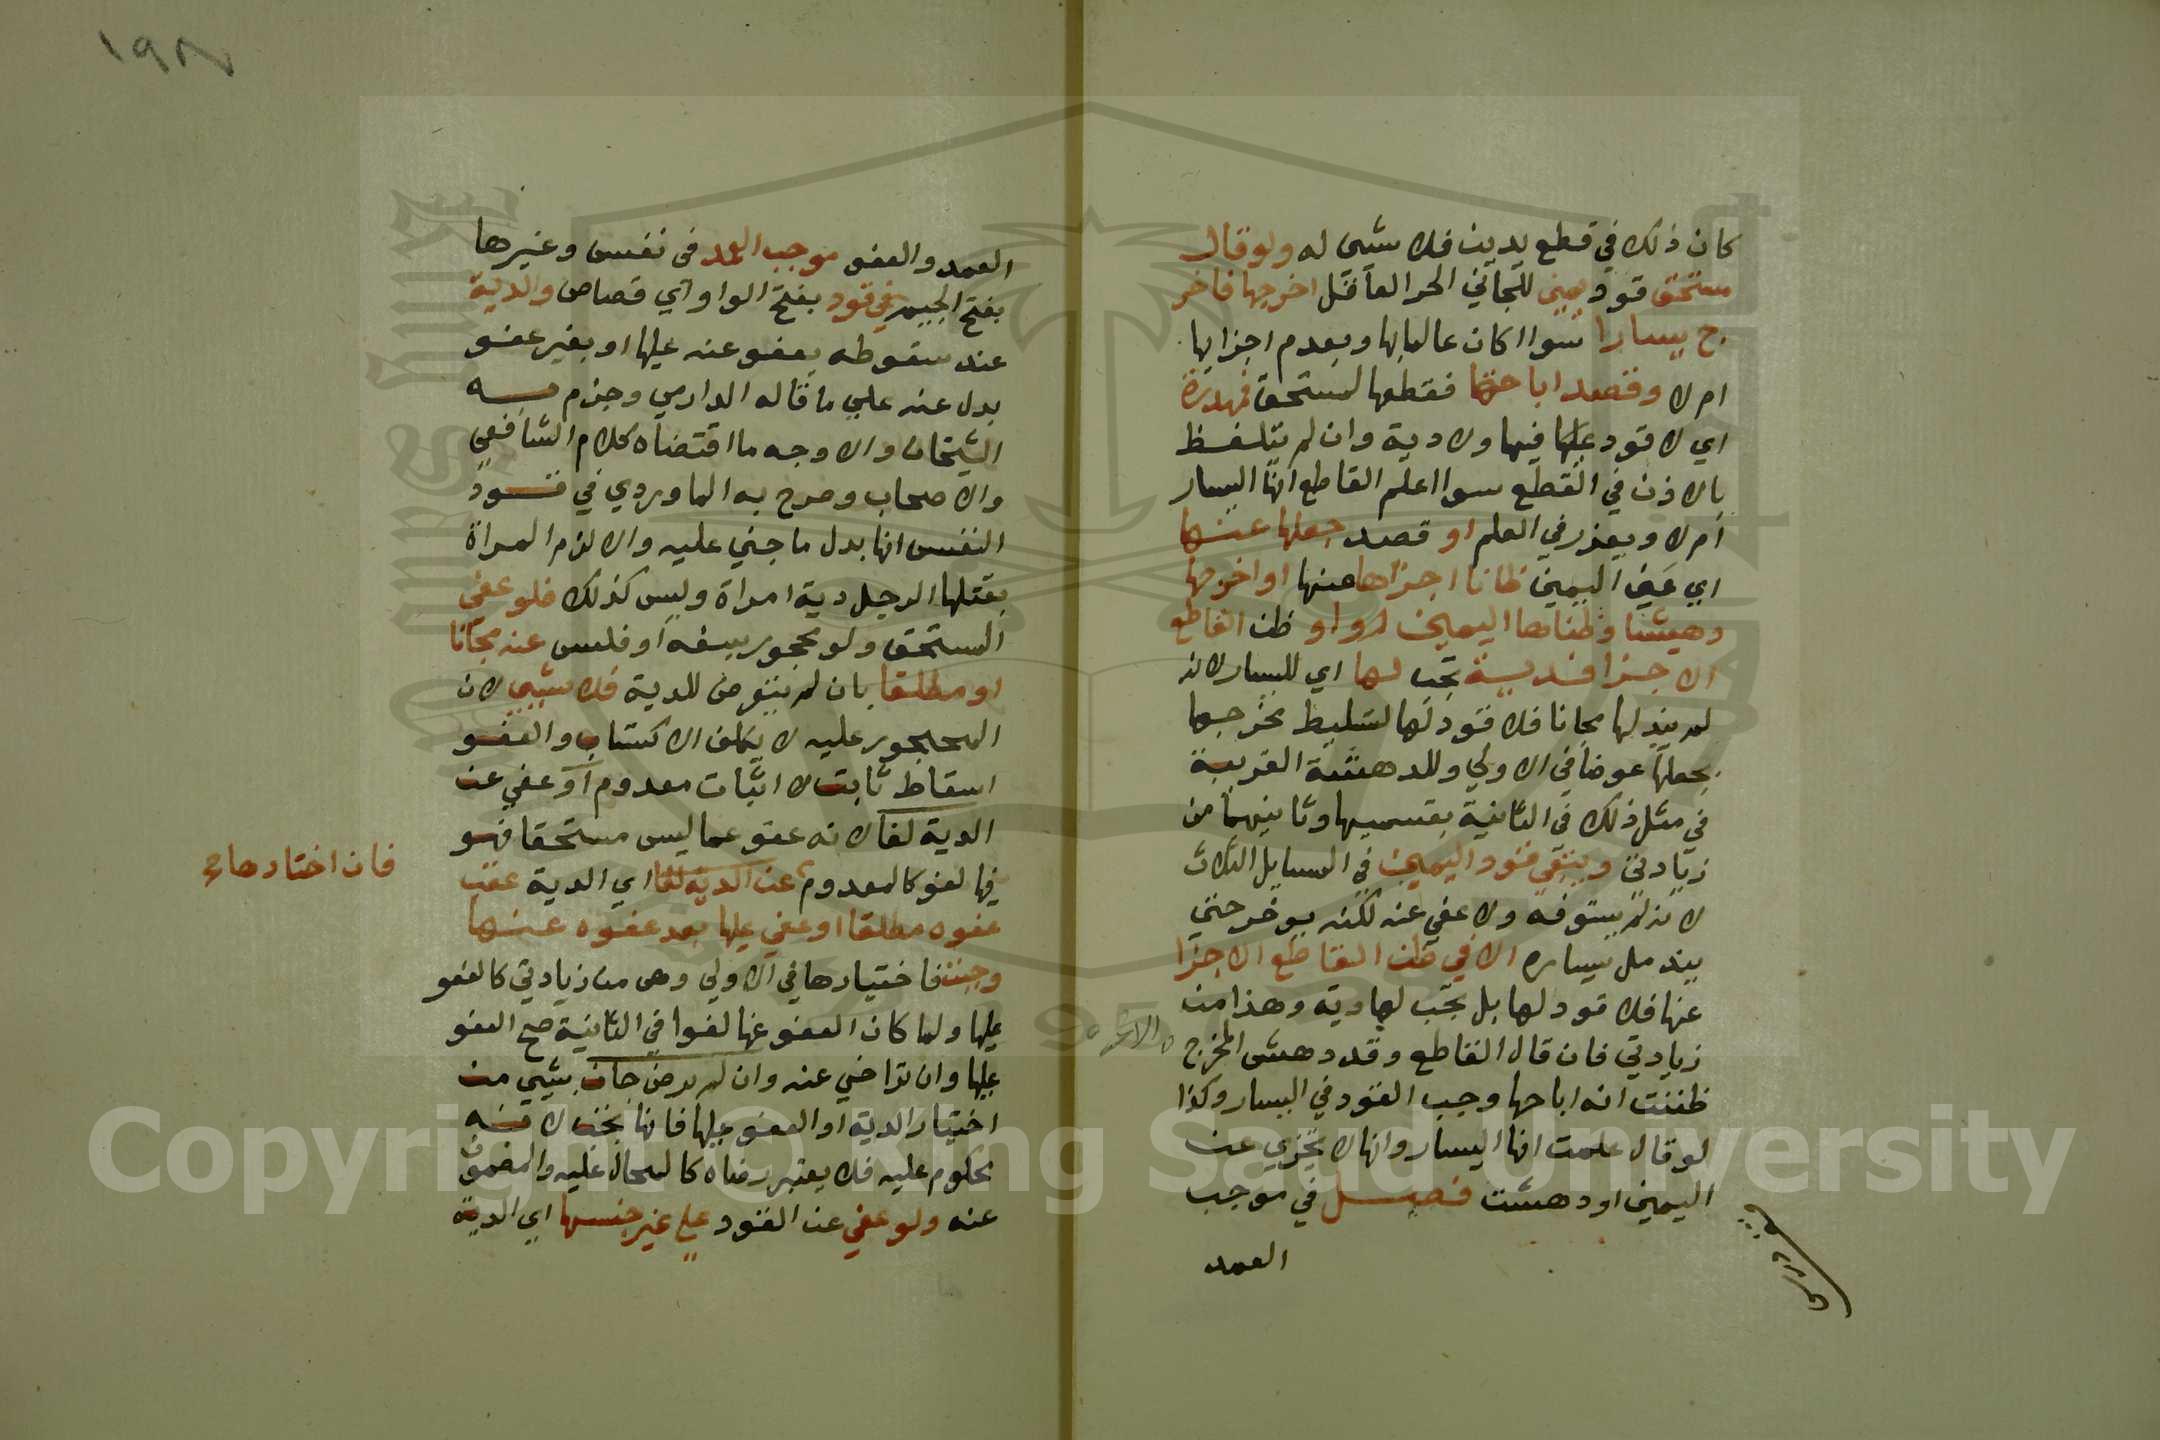 كان ذلك في قطع يدين فلا شى له ولو قال
مستحق قود يمين للجاني الحر العاقل اخرجها فاخر
ج يسارا سواا كان عالما بها وبعدم اجزايها
ام لا وقصد اباحتها فقطعها المستحق فمهدرة
اي لا قود عليها فيها ولا دية وان لم يتلفظ
بالاذن في القطع سواا علم القاطع انها اليسار
ام لا ويعذر في العلم او قصد جعلها عنها
اي عن اليمين ظانا اجزاها عنها او اخرجها
دهيشا وظناها اليمين او او ظن القاطع
الاجزا فدية تجب لها اي لليسار لانه
لم يبذلها مجانا فلا قود لها لتسليط مخرجها
بجعلها عوضا في الاولي وللدهشة القريبة
في مثل ذلك في الثانية بقسميها وثانيهما من
زيادتي ويبقي قود اليمين في المسايل الثلاث
لانه لم يستوفه ولا عفي عنه لكنه يوخر حتي
يندمل يساره الا في ظن القاطع الاجزا
عنها فلا قود لها بل تجب لها دية وهذا من
زيادتي فان قال القاطع وقد دهش المخرج
ظننت انه اباحها وجب القود في اليسار وكذا
لو قال علمت انها اليسار وانها لا تجزي عن
اليمين او دهشت فصل في موجب
العمد
١٩٨
العمد والعفو موجب العمد في نفس وغيرها
بفتح الجيم في قود بفتح الواو اي قصاص والدية
عند سقوطه بعفو عنه عليها او بغير عفو
بدل عنه علي ما قاله الدارمي وجزم به
الشيخان والاوجه ما اقتضاه كلام الشافعي
والاصحاب وصرح به الماوردي في قود
النفس انها بدل ما جني عليه والا لزم المراة
بقتلها الرجل دية امراة وليس كذلك فلو عفي
المستحق ولو محجور سفه او فلس عنه مجانا
او مطلقا بان لم يتعرض للدية فلا شيي لان
المحجور عليه لا يكلف الاكتساب والعفو
اسقاط ثابت لا اثبات معدوم او عفي عن
الدية لغا لانه عفو عما ليس مستحقا فهو
فيها لغو كالمعدوم عن الدية لغا اي الدية عقب
عفوه مطلقا او عفي عليها بعد عفوه عنها
وجبت فاختيارها في الاولي وهى من زيادتي كالعفو
عليها ولما كان العفو عنها لغوا في الثانية صح العفو
عليها وان تراخي عنه وان لم يرض جان بشيي من
اختيار الدية او العفو عليها فانها تجب لانه
محكوم عليه فلا يعتبر رضاه كالمحال عليه والمضمون
عنه ولو عفي عن القود علي غير جنسها اي الدية
فان اختارها